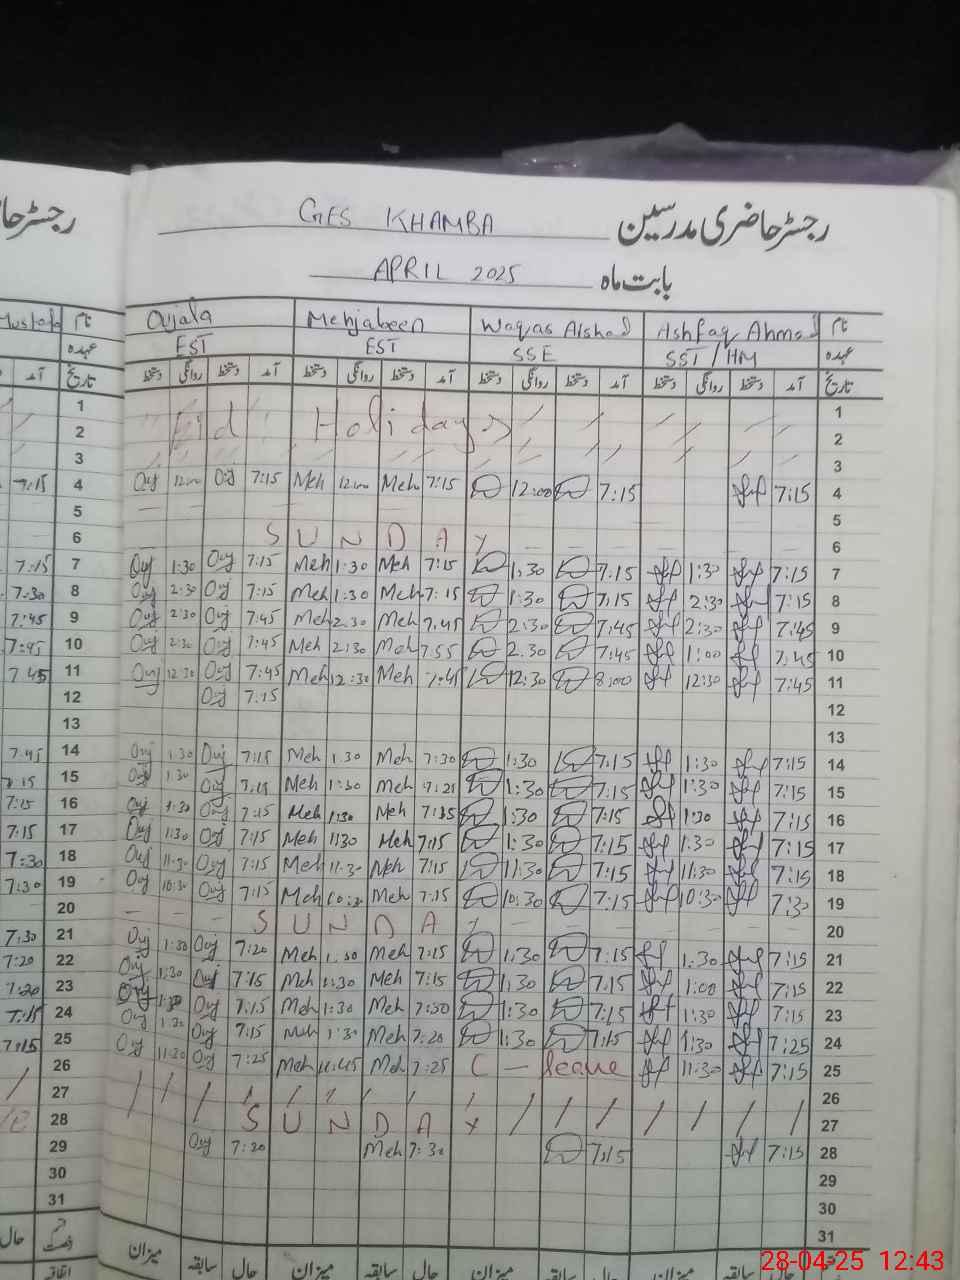 رجسٹر حاضری مدرسین GES KHAMBA
بابت ماہ APRIL 2025
Mustafa نام Oujala Mehjabeen Waqas Alshad Ashfaq Ahmad نام
عہدہ EST EST SSE SST/HM عہدہ
آمد تاریخ دستخط روانگی دستخط آمد دستخط روانگی دستخط آمد دستخط روانگی دستخط آمد دستخط روانگی دستخط آمد تاریخ
1 1
2 Eid Holidays 2
3 3
7:15 4 Ouj 12:00 Ouj 7:15 Meh 12:00 Meh 7:15 12:00 7:15 7:15 4
5 5
6 SUNDAY 6
7:15 7 Ouj 1:30 Ouj 7:15 Meh 1:30 Meh 7:15 1:30 7:15 1:30 7:15 7
7:30 8 Ouj 2:30 Ouj 7:15 Meh 1:30 Meh 7:15 1:30 7:15 2:30 7:15 8
7:45 9 Ouj 2:30 Ouj 7:45 Meh 2:30 Meh 7:45 2:30 7:45 2:30 7:45 9
7:45 10 Ouj 2:30 Ouj 7:45 Meh 2:30 Meh 7:55 2:30 7:45 1:00 7:45 10
7:45 11 Ouj 12:30 Ouj 7:45 Meh 12:30 Meh 7:45 12:30 8:00 12:30 7:45 11
12 Ouj 7:15 12
13 13
7:45 14 Ouj 1:30 Ouj 7:15 Meh 1:30 Meh 7:30 1:30 7:15 1:30 7:15 14
7:15 15 Ouj 1:30 Ouj 7:15 Meh 1:30 Meh 1:30 7:15 1:30 7:15 15
7:15 16 Ouj 1:30 Ouj 7:15 Meh 1:30 Meh 1:30 7:15 1:30 7:15 16
7:15 17 Ouj 1:30 Ouj 7:15 Meh 1:30 Meh 7:15 1:30 7:15 1:30 7:15 17
7:30 18 Ouj 11:30 Ouj 7:15 Meh 11:30 Meh 7:15 11:30 7:15 11:30 7:15 18
7:30 19 Ouj 10:30 Ouj 7:15 Meh 10:30 Meh 7:15 10:30 7:15 10:30 7:30 19
20 SUNDAY 20
7:30 21 Ouj 1:30 Ouj 7:20 Meh 1:30 Meh 7:15 1:30 7:15 1:30 7:15 21
7:20 22 Ouj 1:30 Ouj 7:15 Meh 1:30 Meh 7:15 1:30 7:15 1:00 7:15 22
7:20 23 Ouj 1:30 Ouj 7:15 Meh 1:30 Meh 1:30 7:15 1:30 7:15 23
7:15 24 Ouj 1:30 Ouj 7:15 Meh 1:30 Meh 7:20 1:30 7:15 1:30 7:25 24
7:15 25 Ouj 11:30 Ouj 7:25 Meh 11:45 Meh 7:25 C - leave 11:30 7:15 25
26 26
27 SUNDAY 27
28 Ouj 7:30 Meh 7:30 7:15 7:15 28
29 29
30 30
31 31
حال میزان سابقہ حال میزان سابقہ حال میزان سابقہ حال میزان سابقہ حال
28-04-25 12:43